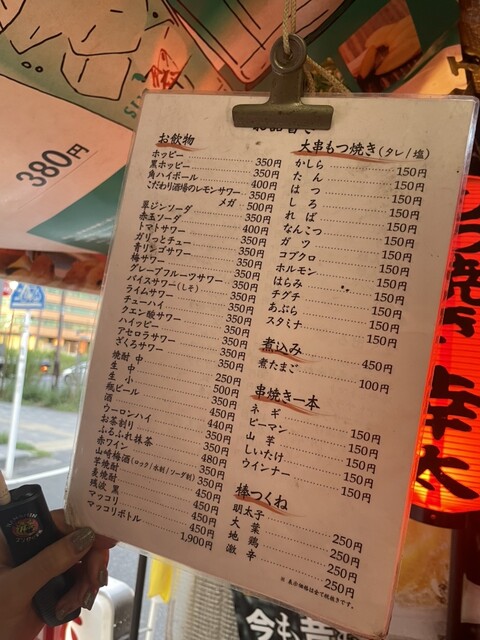 お飲物
ホッピー 350円
黒ホッピー 350円
角ハイボール 400円
こだわり酒場のレモンサワー 350円
メガ 500円
翠ジンソーダ 350円
赤玉ソーダ 350円
トマトサワー 400円
ガりっとチュー 350円
青リンゴサワー 350円
梅サワー 350円
グレープフルーツサワー 350円
バイスサワー(しそ) 350円
ライムサワー 350円
チューハイ 350円
クエン酸サワー 350円
ハイッピー 350円
アセロラサワー 350円
ざくろサワー 350円
焼酎 中 250円
生 中 500円
生 小
瓶ビール
酒 450円
ウーロンハイ 440円
お茶割り
ふるふれ抹茶
赤ワイン
山崎梅酒(ロック/水割/ソーダ割)
芋焼酎 450円
麦焼酎 450円
残波 黒 450円
マッコリ 450円
マッコリボトル 1,900円
大串もつ焼き(タレ/塩)
かしら 150円
たん 150円
はつ 150円
しろ 150円
ればー 150円
なんこつ 150円
ガツ 150円
コブクロ 150円
ホルモン 150円
はらみ 150円
チグチ 150円
あぶら 150円
スタミナ 150円
煮込み 450円
煮たまご 100円
串焼き一本
ネギ 150円
ピーマン 150円
山芋 150円
しいたけ 150円
ウインナー 150円
棒つくね
明太子 250円
大葉 250円
地鶏 250円
激辛 250円
※表示価格は全て税抜きです。
380円